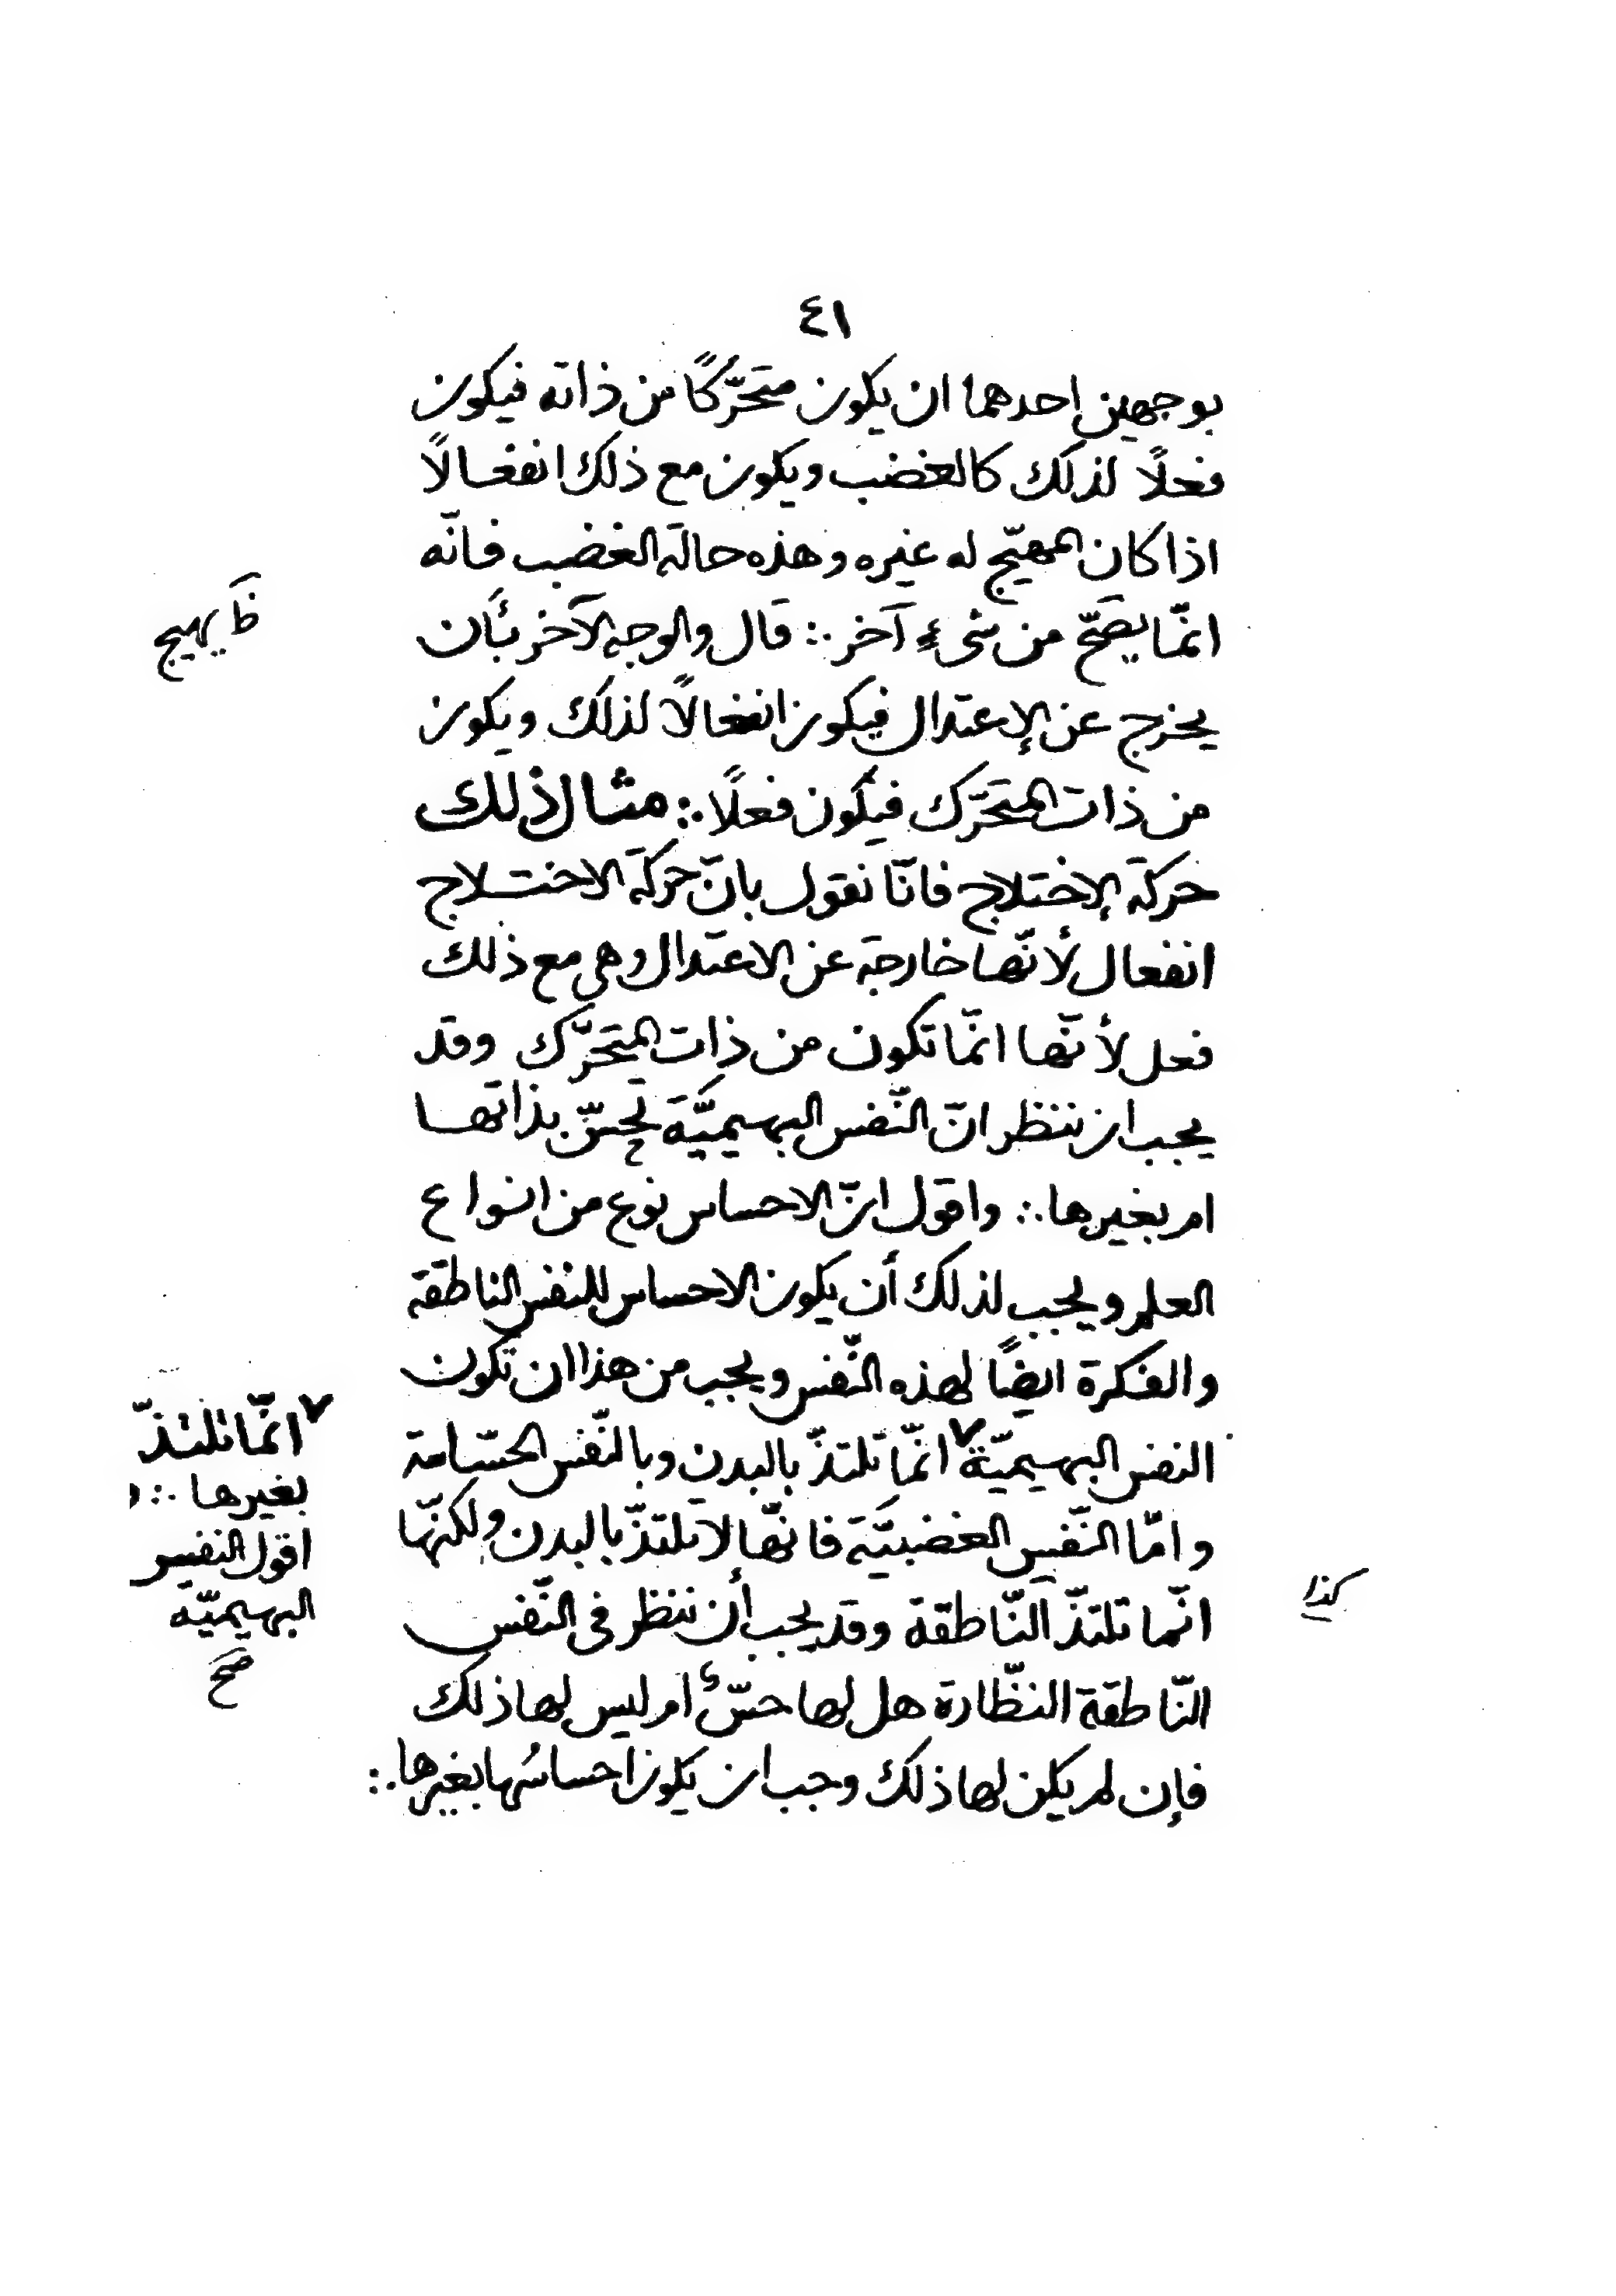 ٤١
بوجهين احدهما ان يكون متحرّكًا من ذاته فيكون
فعلًا لذلك كالغضب ويكون مع ذلك انفعالًا
اذا كان المهيّج له غيره وهذه حالة الغضب فانّه
انّما يصَحّ من شىءٍ آخر ∴ قال والوجه الآخر بأن
يخرج عن الإعتدال فيكون انفعالًا لذلك ويكون
من ذات المتحرّك فيكون فعلًا ∴ مثال ذلك
حركة الإختلاج فانّا نقول بانّ حركة الاختلاج
انفعال لأنّها خارجة عن الاعتدال وهى مع ذلك
فعل لأنّها انّما تكون من ذات المتحرّك وقد
يجب ان ننظر انّ النّفس البهيميّة تحسّ بذاتها
ام بغيرها ∴ واقول انّ الاحساس نوع من انواع
العلم ويجب لذلك أن يكون الاحساس للنفس الناطقة
والفكرة ايضًا لهذه النّفس ويجب من هذا ان تكون
النفس البهيميّة ٧ انّما تلتذّ بالبدن وبالنّفس الحسّاسة
وامّا النّفس الغضبيّة فانّها لا تلتذّ بالبدن ولكنّها
انّما تلتذّ النّاطقة وقد يجب أن ننظر فى النّفس
النّاطقة النظّارة هل لها حسّ أم ليس لها ذلك
فإن لم يكن لها ذلك وجب ان يكون احساسُها بغيرها ∴
ظ يهيج
٧ انّما تلتذّ
بغيرها ∴ و
اقول النفس
البهيميّة
صح
كذا